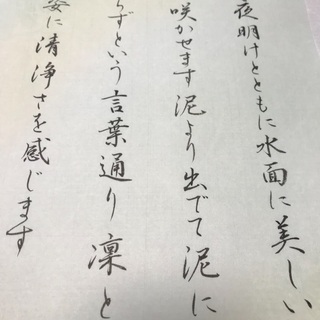 夜明けとともに水面に美しい
咲かせます泥より出でて泥に
らずという言葉通り凜と
姿に清浄さを感じます